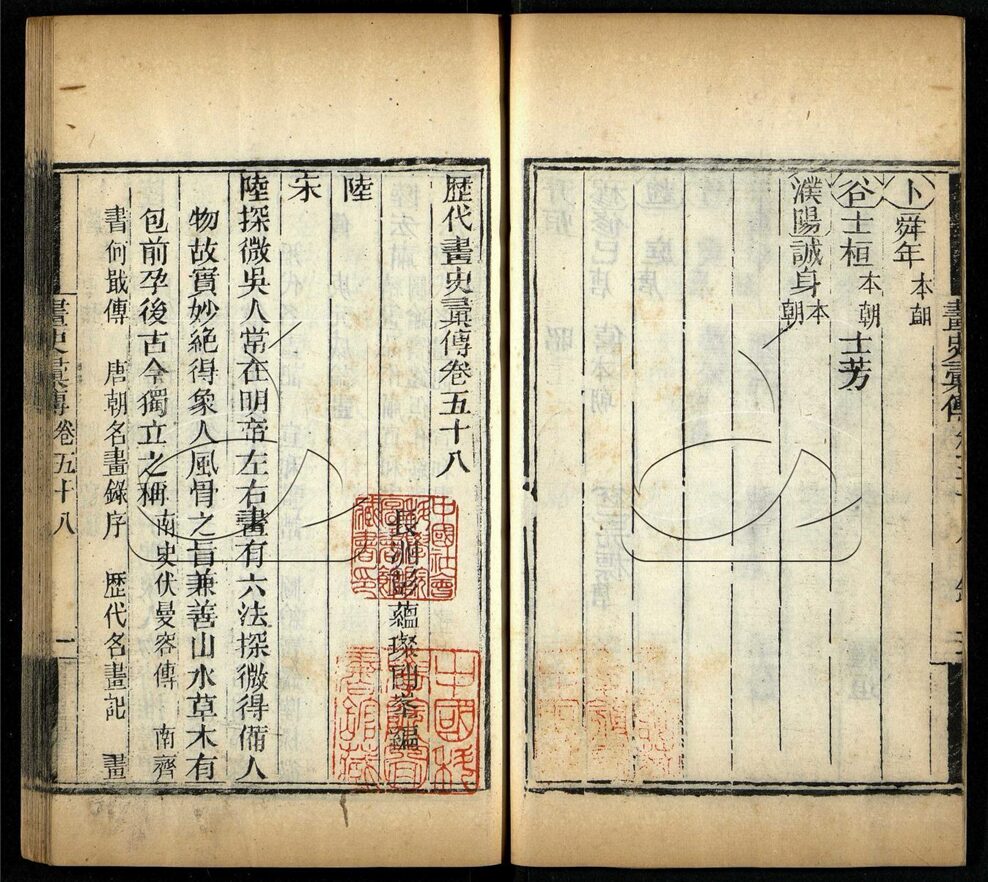 卜舜年 本朝
谷士桓 本朝 士芳
濮陽誠身 本朝
畫史彙傳
歷代畫史彙傳卷五十八
長洲彭蘊璨朗峯編
陸
宋
陸探微吳人常在明帝左右畫有六法探微得備人
物故實妙絕得象人風骨之旨兼善山水草木有
包前孕後古今獨立之稱 南史伏曼容傳 南齊
書何戢傳 唐朝名畫錄序 歷代名畫記 畫
畫史彙傳 卷五十八 一
中國社會